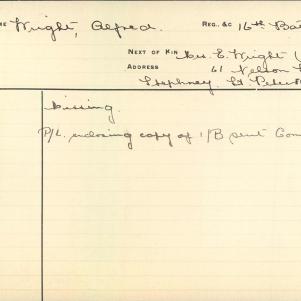 ME Wright, Alfred. REG., &C 16th Bat
NEXT OF KIN Mrs. E. Wright
ADDRESS 61 Nelson
Stephney. St. Peters
Missing.
P/L. enclosing copy of 1/B sent Com